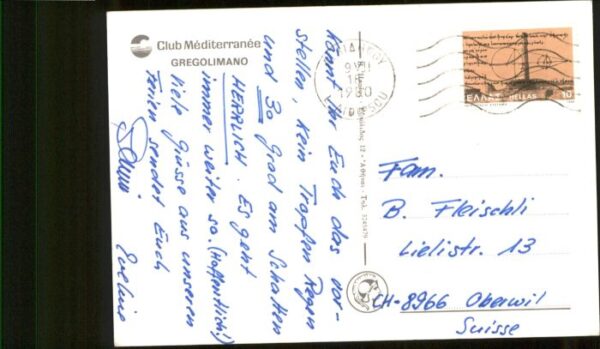 Club Méditerranée
GREGOLIMANO
Könnt Ihr Euch das vor-
stellen, kein Tropfen Regen
und 30 Grad am Schatten
HERRLICH. Es geht
immer weiter so. (Hoffentlich!)
Viele Grüsse aus unseren
Ferien sendet Euch
Eveline
9 VII
1980
ΕΛΛΑΣ HELLAS 10
Fam.
B. Fleischli
Lielistr. 13
CH-8966 Oberwil
Suisse